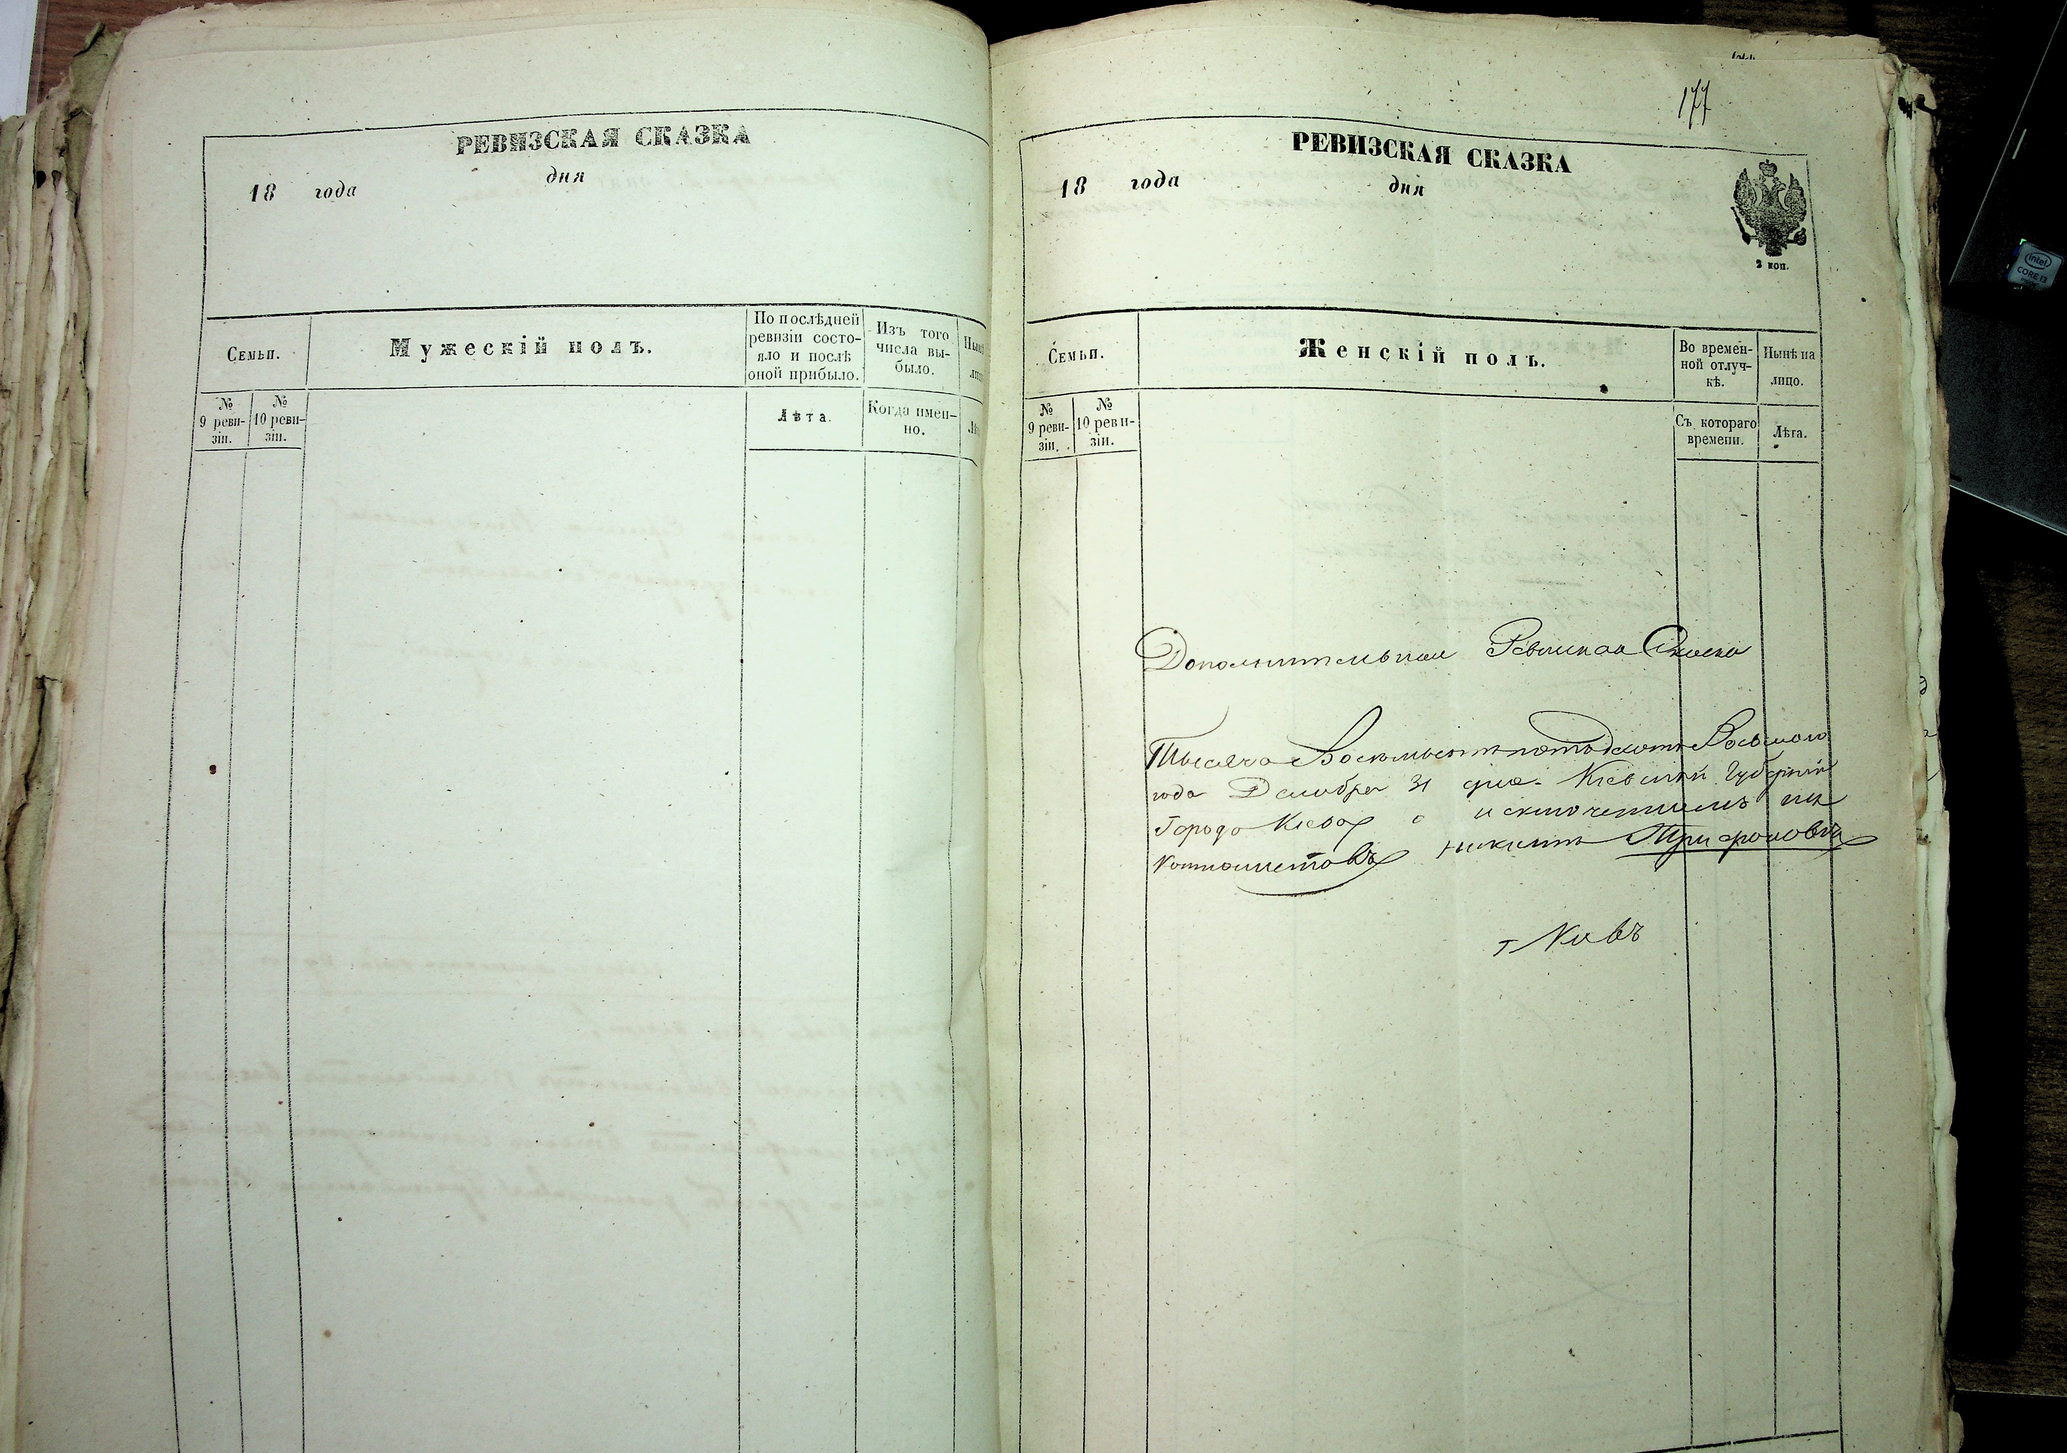 РЕВИЗСКАЯ СКАЗКА
18 года дня
Семьи.
Мужескій полъ.
По послѣдней
ревизіи состо-
яло и послѣ
оной прибыло.
Изъ того
числа вы-
было.
№
9 реви-
зіи.
№
10 реви-
зіи.
Лѣта.
Когда имен-
но.
177
РЕВИЗСКАЯ СКАЗКА
18 года дня
2 коп.
Семьи.
Женскій полъ.
Во времен-
ной отлуч-
кѣ.
Нынѣ на
лицо.
№
9 реви-
зіи.
№
10 реви-
зіи.
Съ котораго
времени.
Лѣта.
Дополнительная Ревизская Сказка
Тысяча Восемьсотъ пятьдесятъ Восьмого
года Декабря 31 дня Кіевской Губерніи
Города Кіева о
Никиты Трифонова
г Кіевъ
intel
CORE i3